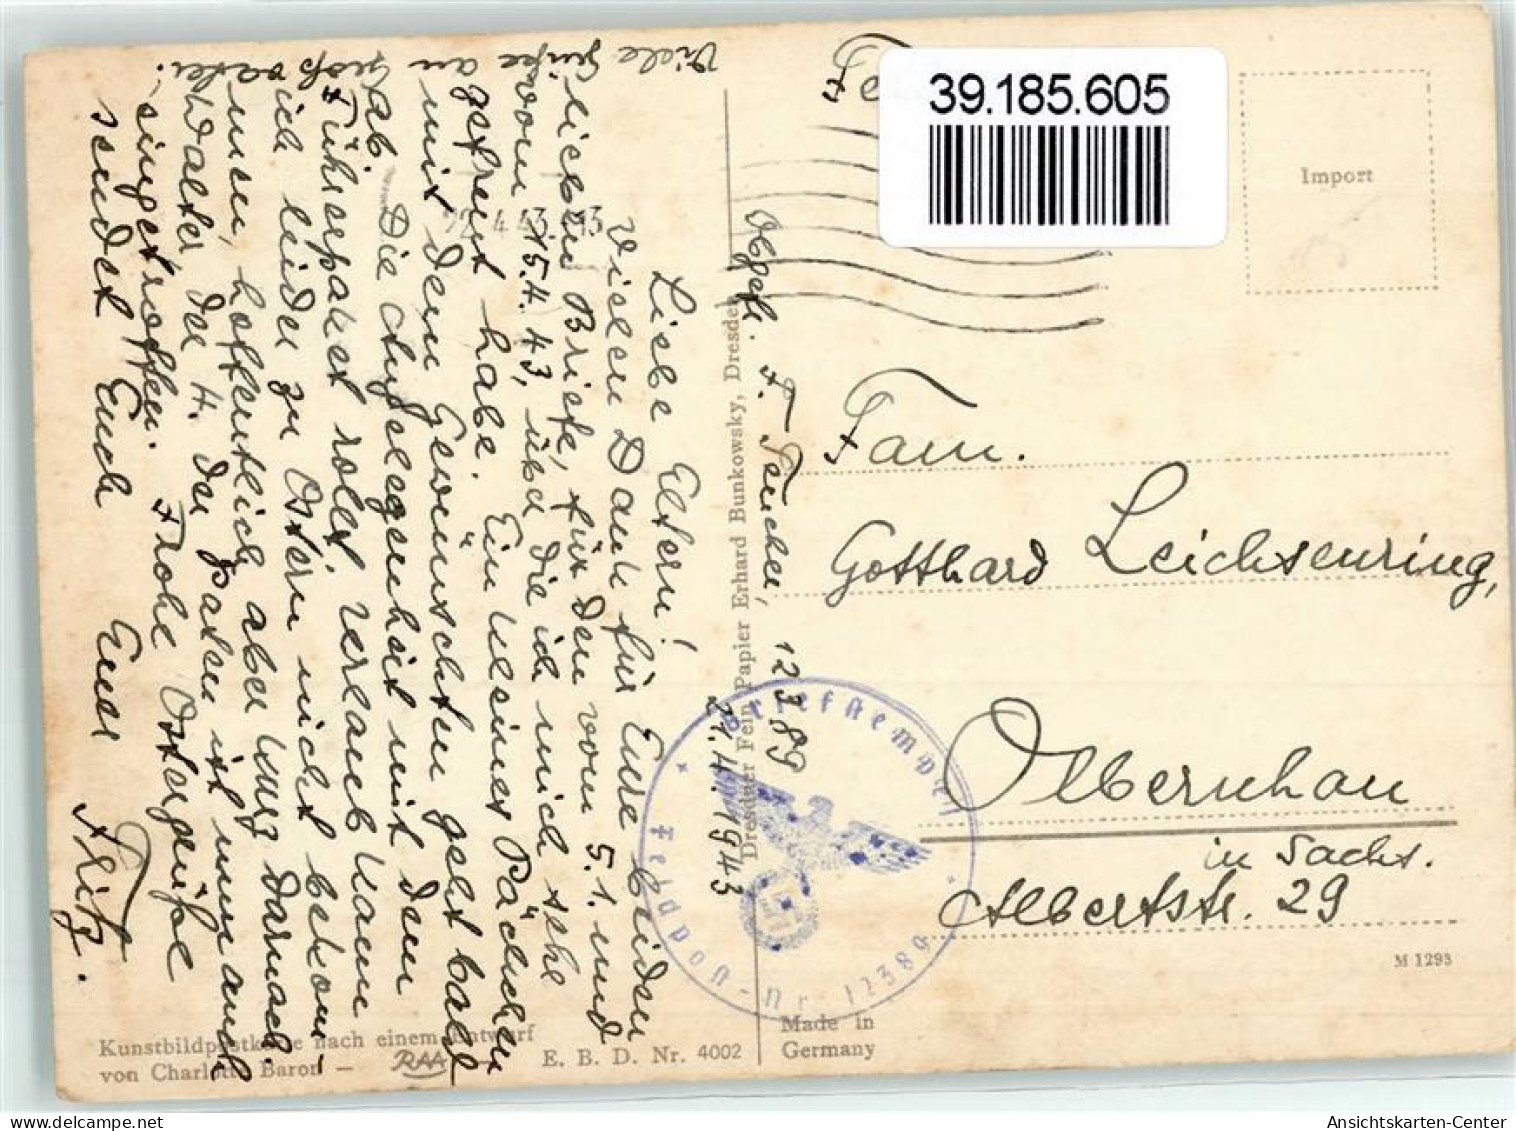 39.185.605
Import
Obgefr. F. Teicher, 12389
21.4.1943
Liebe Eltern!
Vielen Dank für Eure beiden
lieben Briefe, für den vom 5.1. und
vom 15.4.43, über die ich mich sehr
gefreut habe. Ein kleines Päckchen
mit dem Gewünschten geht bald
ab. Die Angelegenheit mit dem
Führerpaket rollt. Urlaub kann
ich leider zu Ostern nicht bekom-
men, hoffentlich aber kurz darnach.
Walter, der H. der Paten ist nun auch
eingetroffen. Frohe Ostergrüße
sendet Euch Euer
Fritz.
Viele
Grüße
an
Großvater.
22.4.43.-13
Fam.
Gotthard Leichsenring,
Olbernhau
in Sachs.
Albertstr. 29
Briefstempel
Feldpost-Nr. 12389
Dresdner Fein-Papier Erhard Bunkowsky, Dresden
M 1293
Made in
Germany
Kunstbildpostkarte nach einem Entwurf
von Charlotte Baron — RAA — E. B. D. Nr. 4002
Ansichtskarten-Center